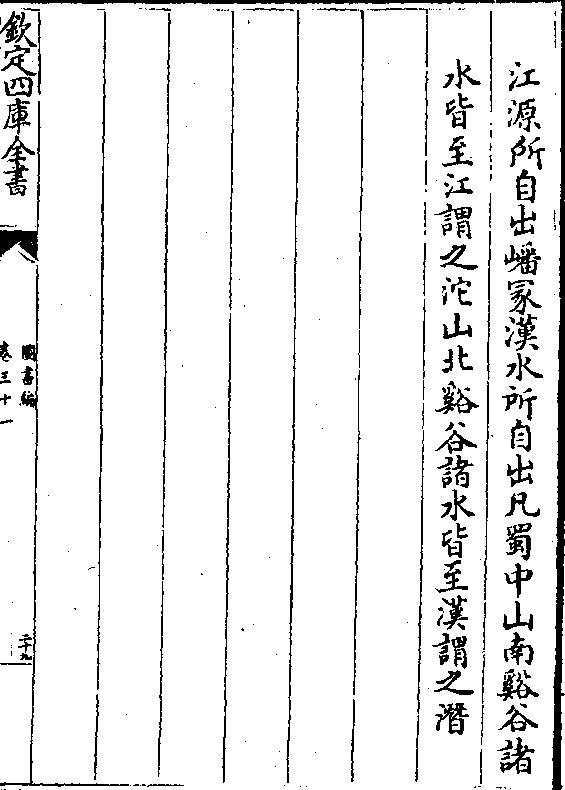 江源所自出嶓冢漢水所自出凡蜀中山南谿谷諸
水皆至江謂之沱山北谿谷諸水皆至漢謂之潛
欽定四庫全書
圖書編
卷三十一
二十九